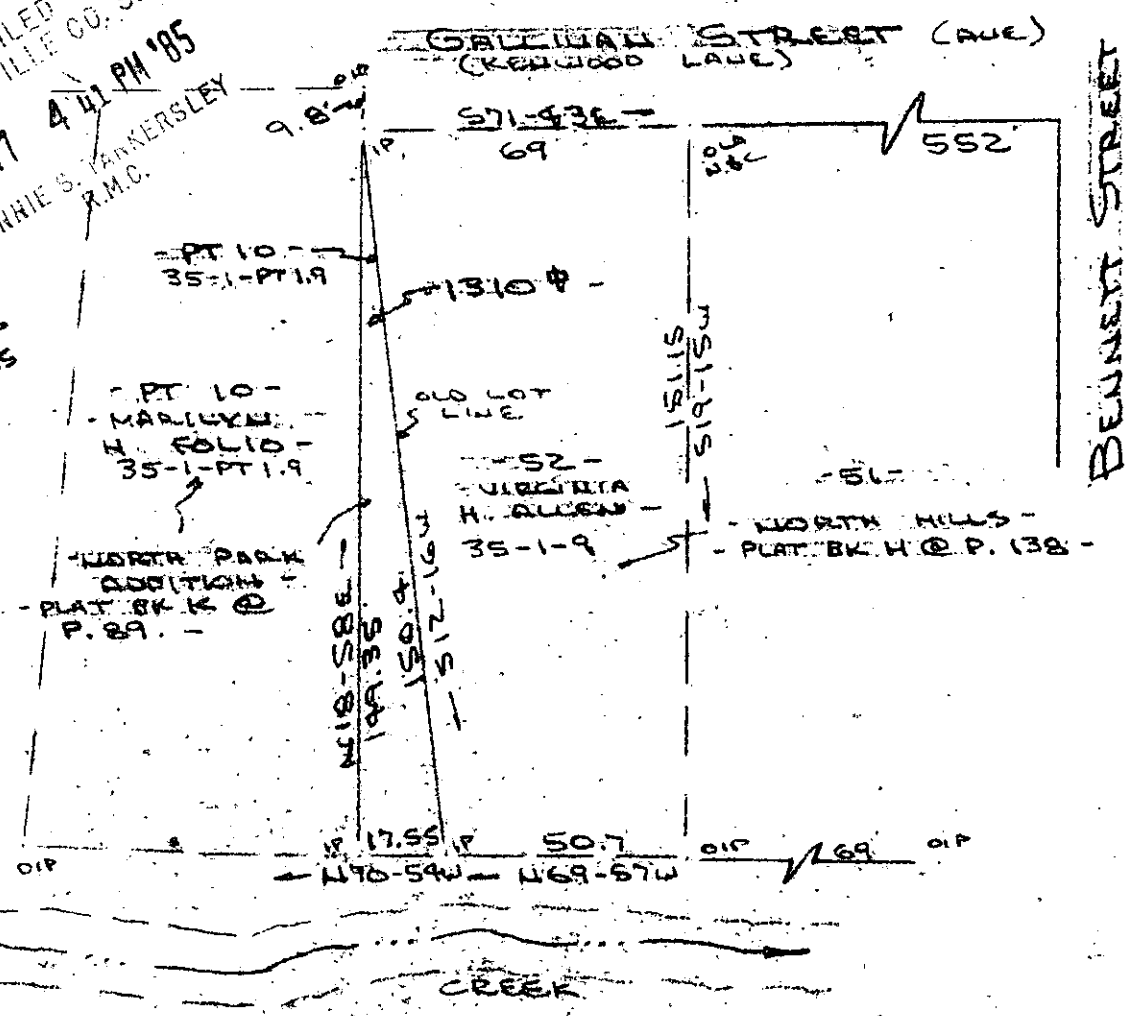 ILLE CO. S.
4 41 PM '85
NNIE S. TANKERSLEY
R.M.C.
GALLIVAN STREET (AVE)
(KENWOOD LANE)
BENNETT STREET
OIP
9.8
S71-43E
69
552
IP
OLD
N&C
- PT 10 -
35-1-PT 1.9
- 1310 -
- PT 10 -
- MARILYN
H. FOLIO -
35-1-PT 1.9
OLD LOT
LINE
- 52 -
- VIRGINIA
H. ALLEN -
35-1-9
151.15
S19-15W
- 51 -
- NORTH HILLS -
- PLAT BK H @ P. 138 -
- NORTH PARK
ADDITION -
- PLAT BK K @
P. 89. -
N18-58E
149.35
150.4
S12-16W
OIP
IP
17.55
IP
50.7
OIP
69
OIP
N70-54W
N69-57W
CREEK